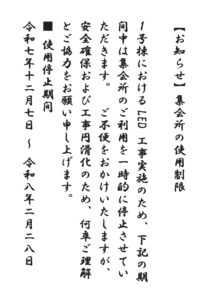 【お知らせ】集会所の使用制限
1号棟における LED 工事実施のため、下記の期
間中は集会所のご利用を一時的に停止させてい
ただきます。 ご不便をおかけいたしますが、
安全確保および工事円滑化のため、何卒ご理解
とご協力をお願い申し上げます。
■ 使用停止期間
令和七年十二月七日 ～ 令和八年二月二八日